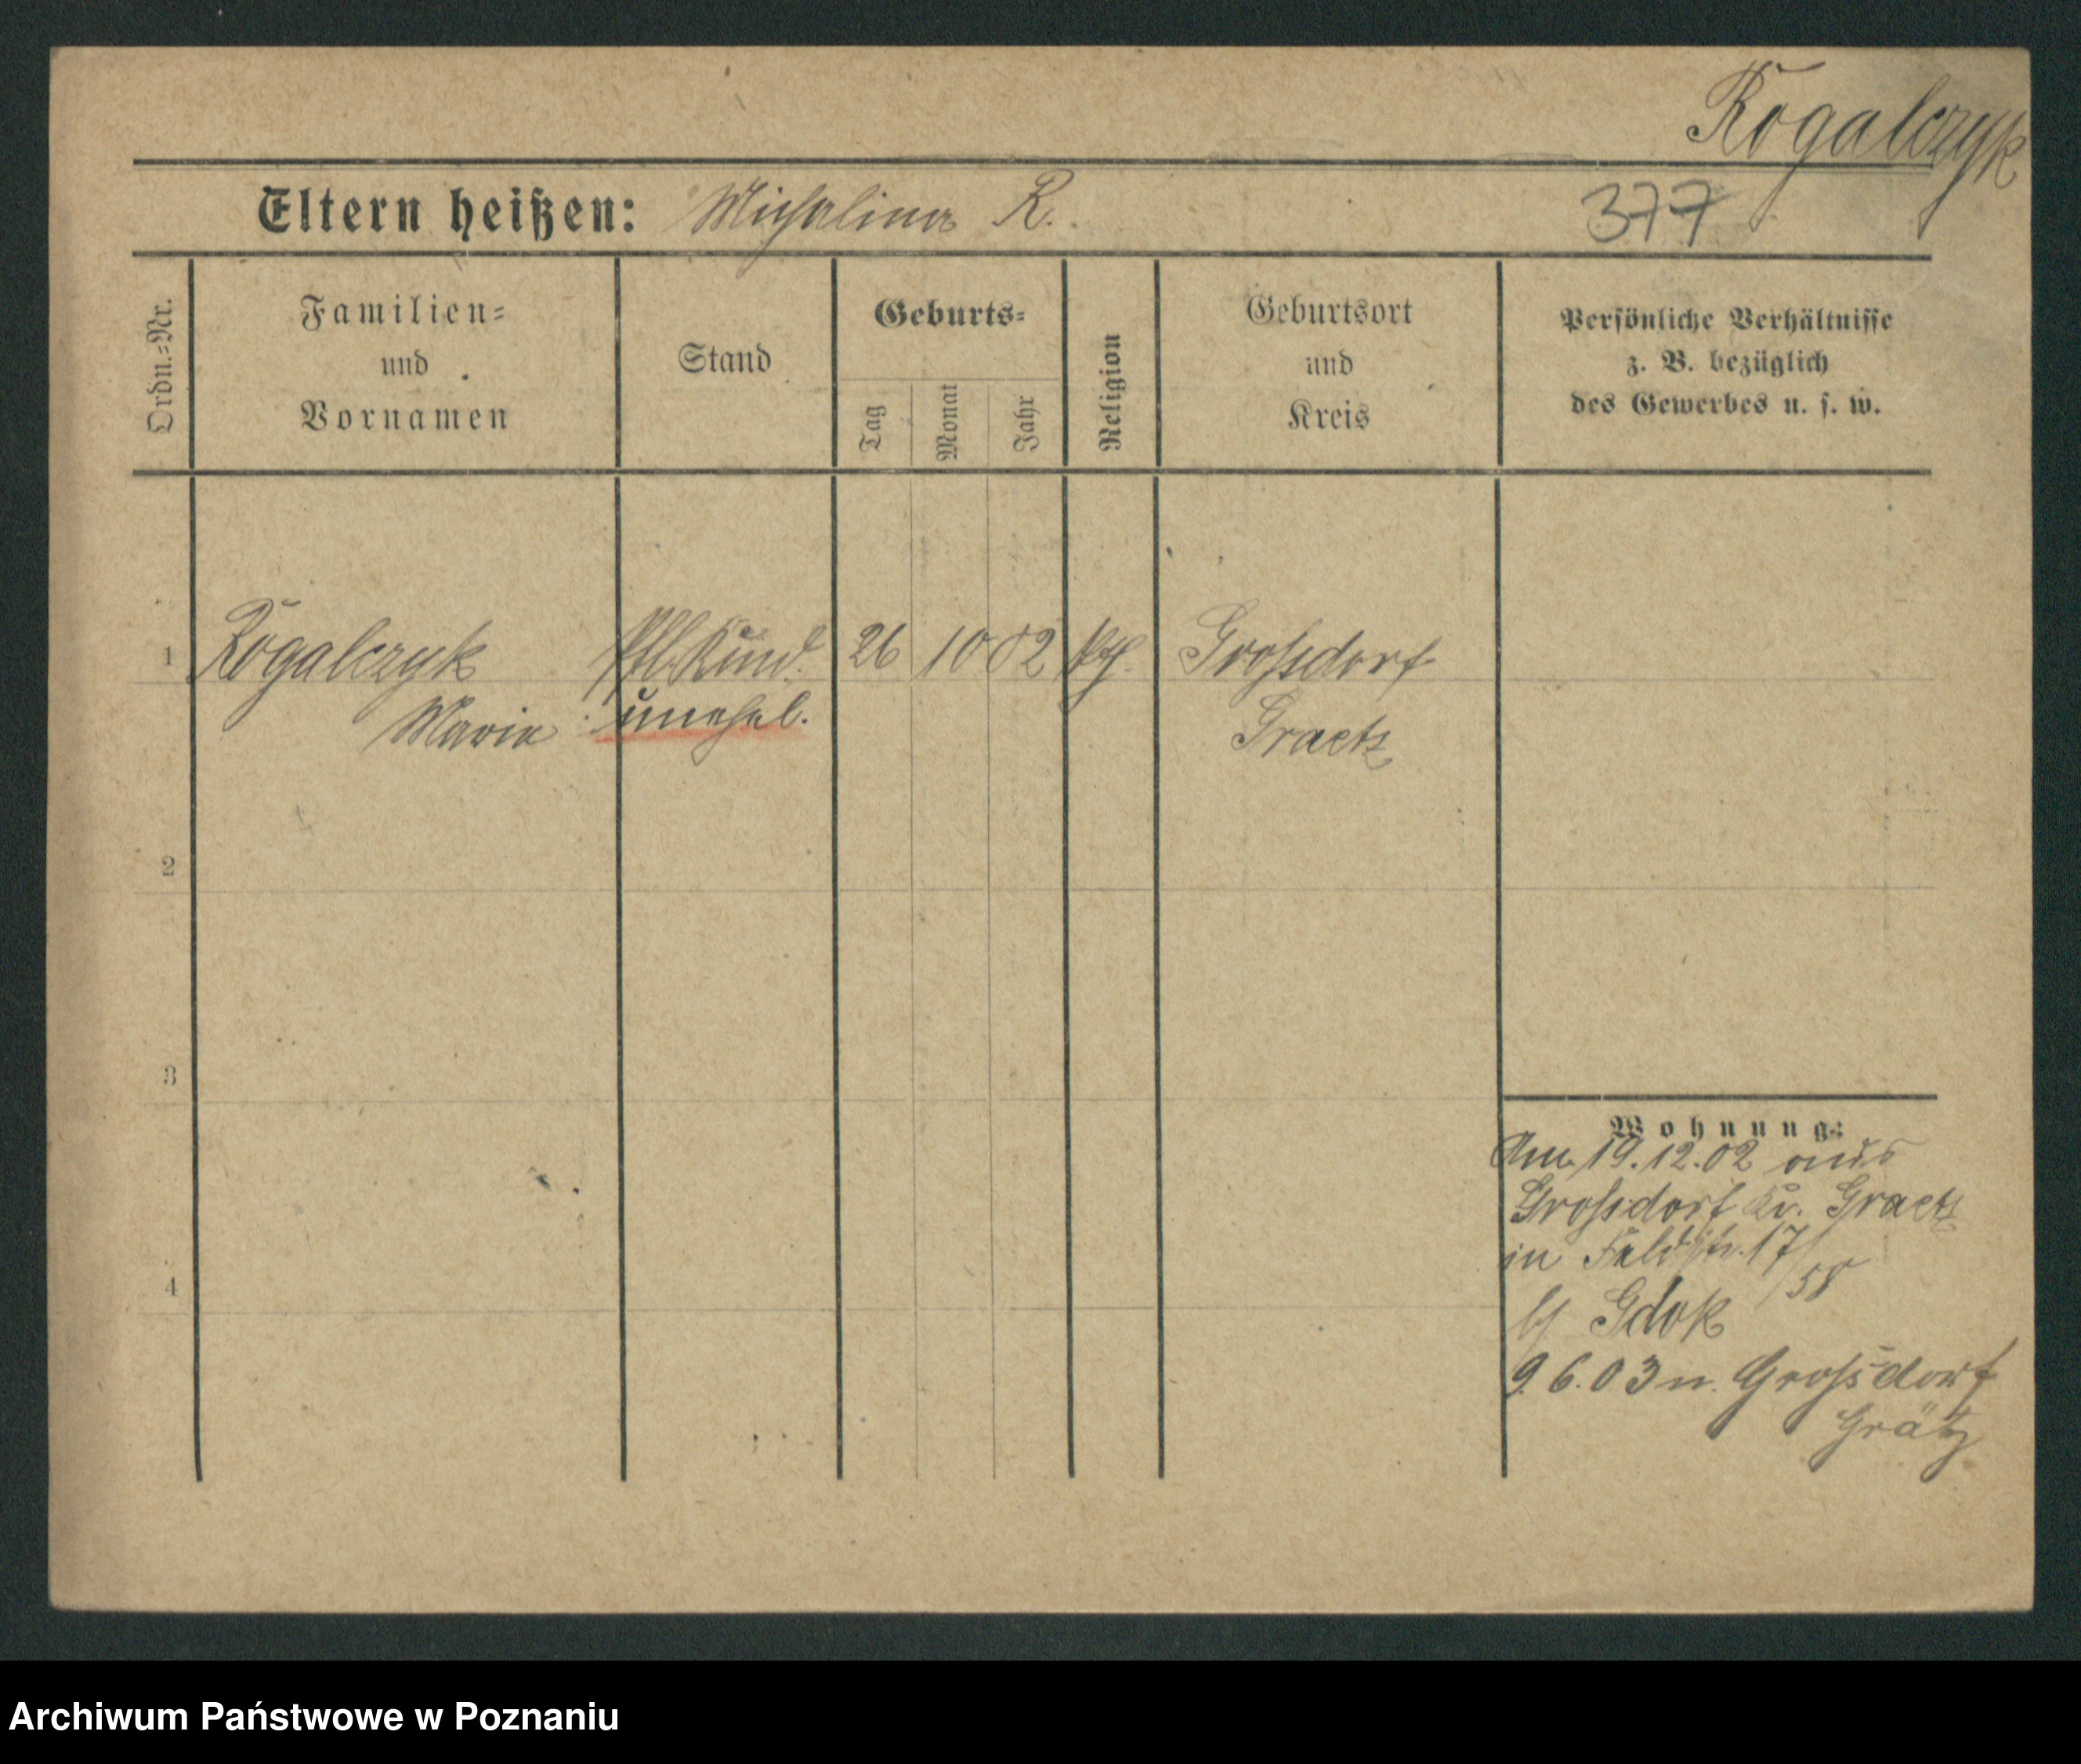 Rogalczyk
Eltern heißen: Michalina R.
377
Ordn.=Nr.
Familien=
und
Vornamen
Stand
Geburts=
Tag
Monat
Jahr
Religion
Geburtsort
und
Kreis
Persönliche Verhältnisse
z. B. bezüglich
des Gewerbes u. s. w.
1 Rogalczyk Pfl. Kind 26 10 02 kth. Grossdorf
Maria unehel. Graetz
2
3
4
Wohnung:
Am 19.12.02 aus
Grossdorf Kr. Graetz
in Feldstr. 17/58
b/ Gdok
9.6.03 n. Grossdorf
Grätz
Archiwum Państwowe w Poznaniu